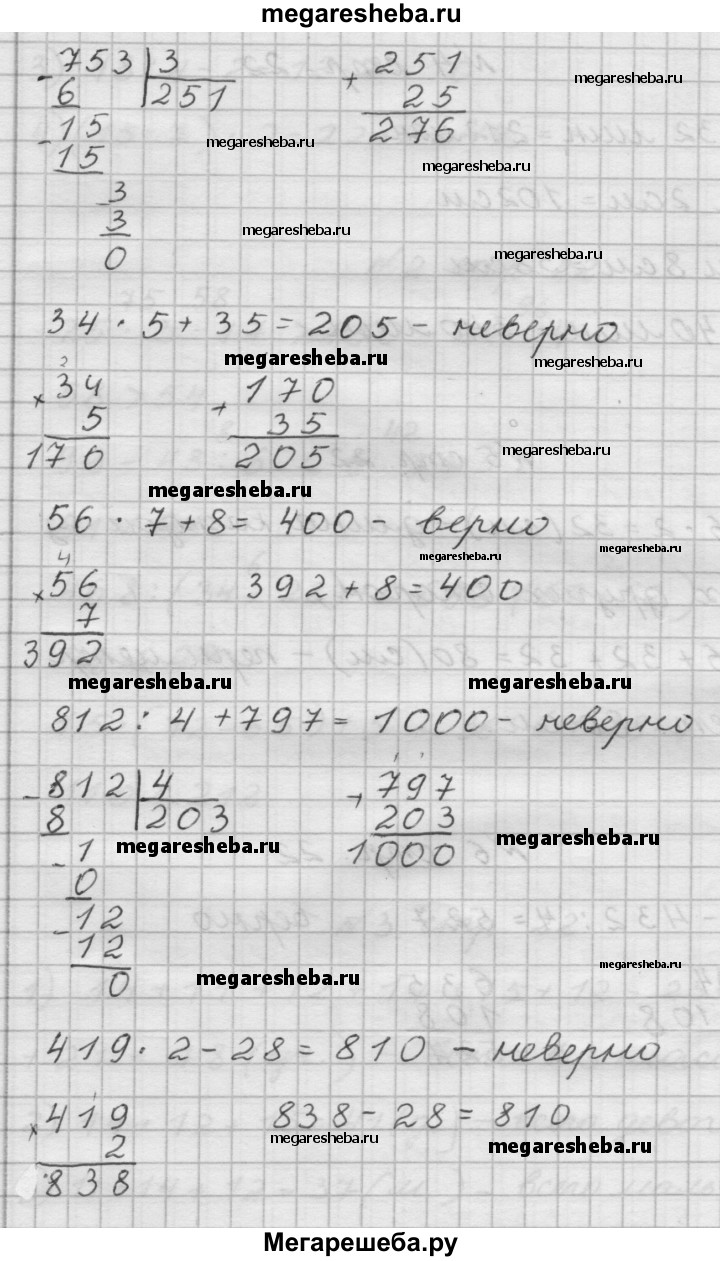 megaresheba.ru
- 753 | 3 + 251
6 251 25 megaresheba.ru
- 15 276
15 megaresheba.ru megaresheba.ru
- 3
3 megaresheba.ru
0 megaresheba.ru
34 · 5 + 35 = 205 - неверно
megaresheba.ru megaresheba.ru
2
× 34 + 170
5 35
170 205 megaresheba.ru
megaresheba.ru
56 · 7 + 8 = 400 - верно
megaresheba.ru megaresheba.ru
4
× 56 392 + 8 = 400
7
392
megaresheba.ru megaresheba.ru
812 : 4 + 797 = 1000 - неверно
- 812 | 4 + 797
8 203 203
megaresheba.ru 1000 megaresheba.ru
- 1
0
- 12
12
0 megaresheba.ru megaresheba.ru
419 · 2 - 28 = 810 - неверно
1
× 419 838 - 28 = 810
2 megaresheba.ru megaresheba.ru
838
Мегарешеба.ру